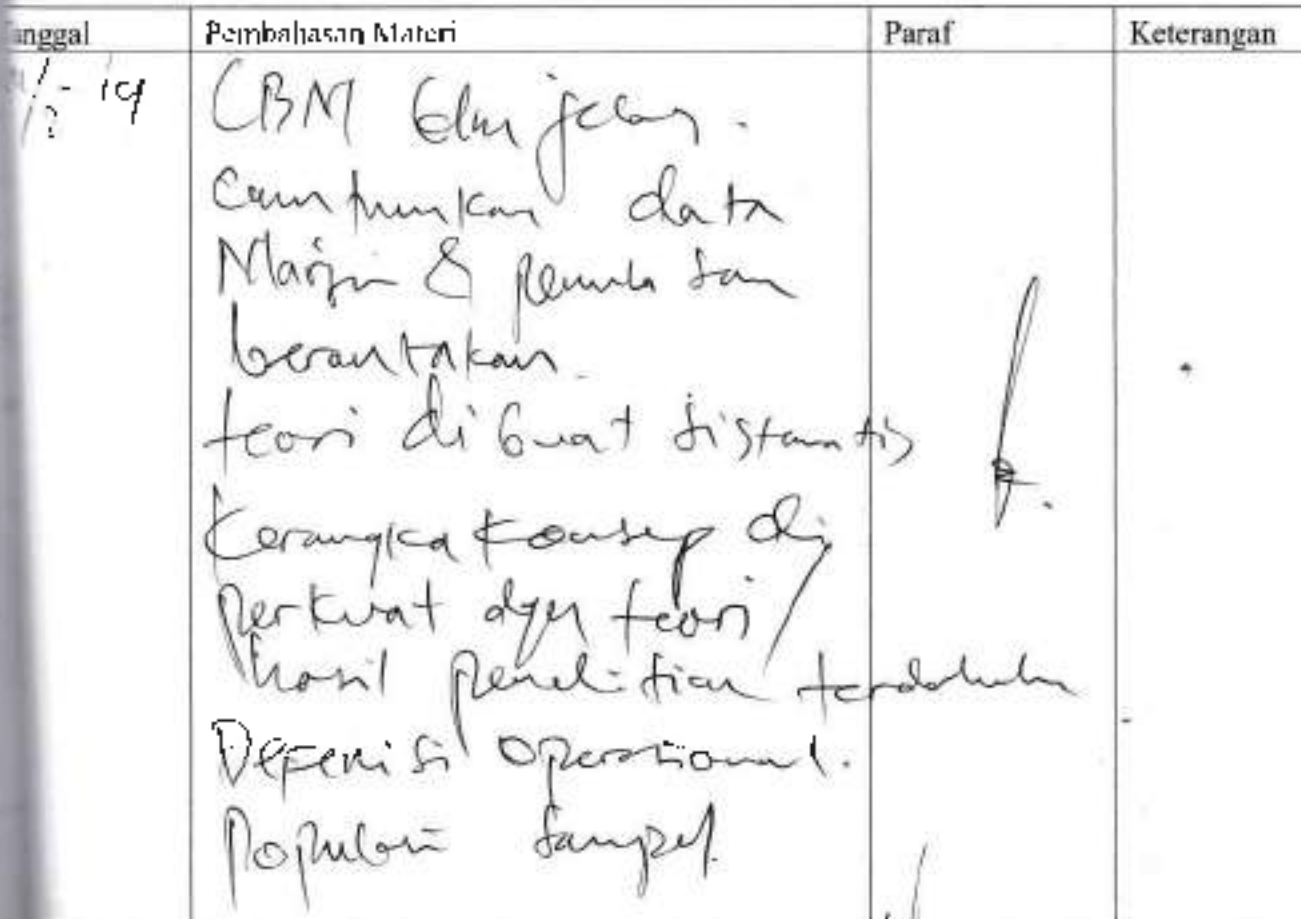 anggal Pembahasan Materi Paraf Keterangan
- 19
CBM jelas.
Cantumkan data
Margin & penulisan
berantakan.
teori dibuat sistematis
Kerangka konsep di
perkuat dgn teori /
hasil penelitian terdahulu
Defenisi operasional.
Populasi sampel